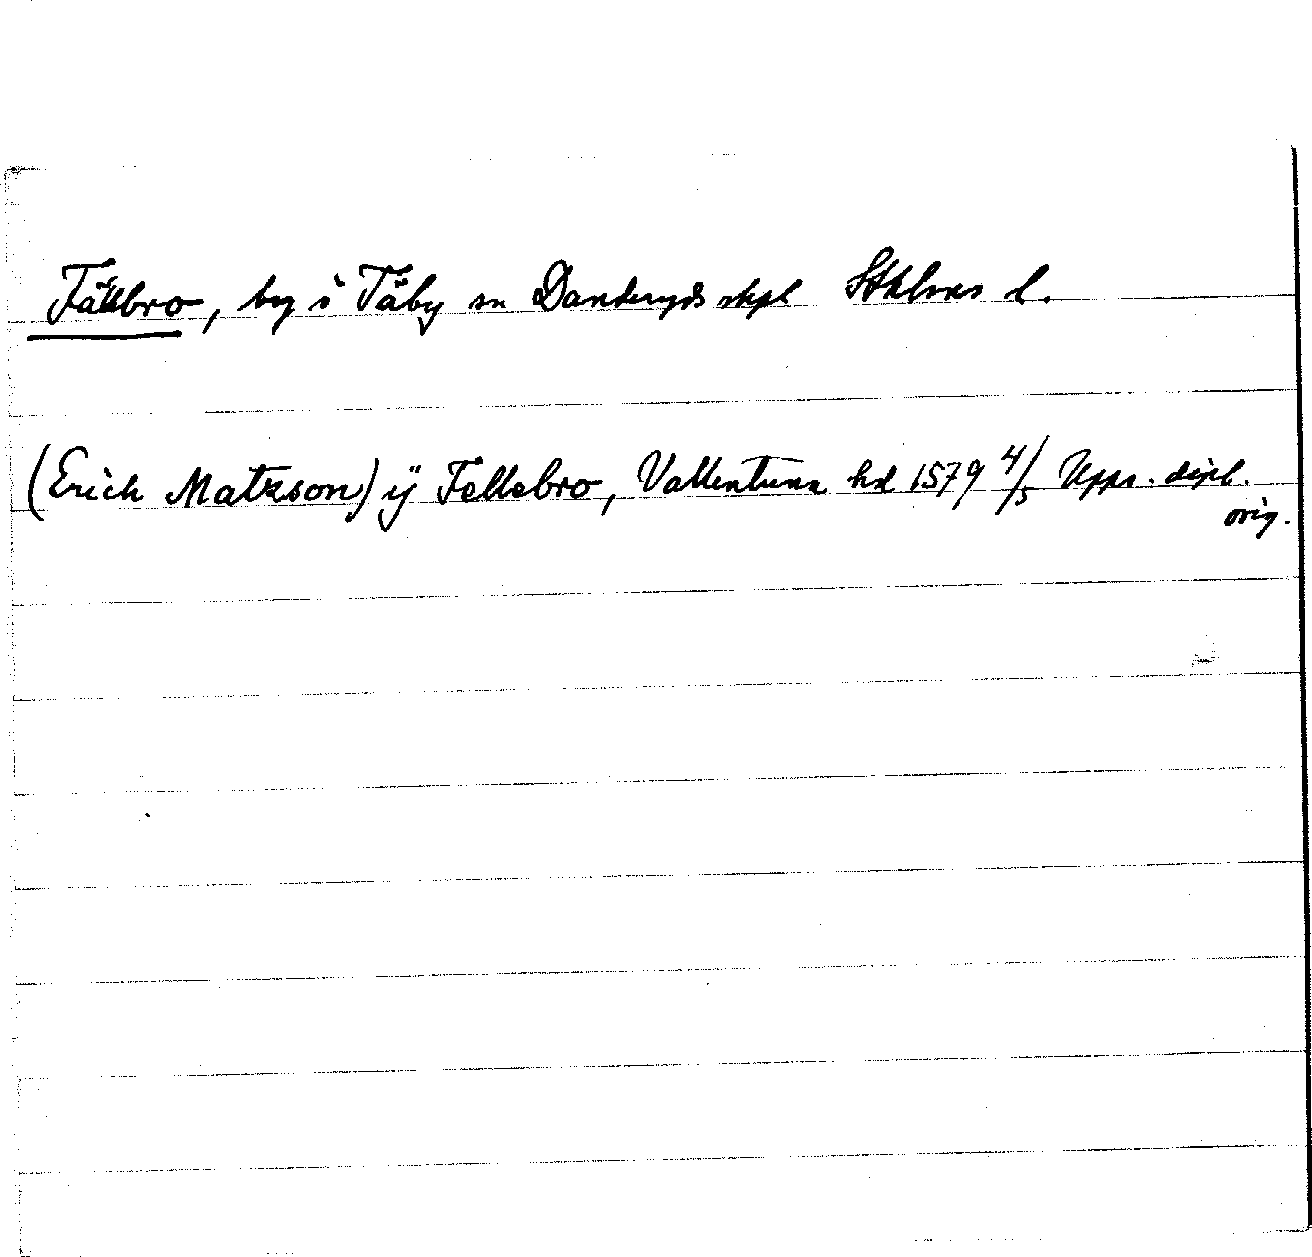 Fällbro, by i Täby sn Danderyds skpl Sthlms l.
(Erich Matzson) ÿ Fellebro, Vallentuna hd 1579 4/5 Upps. dipl.
orig.